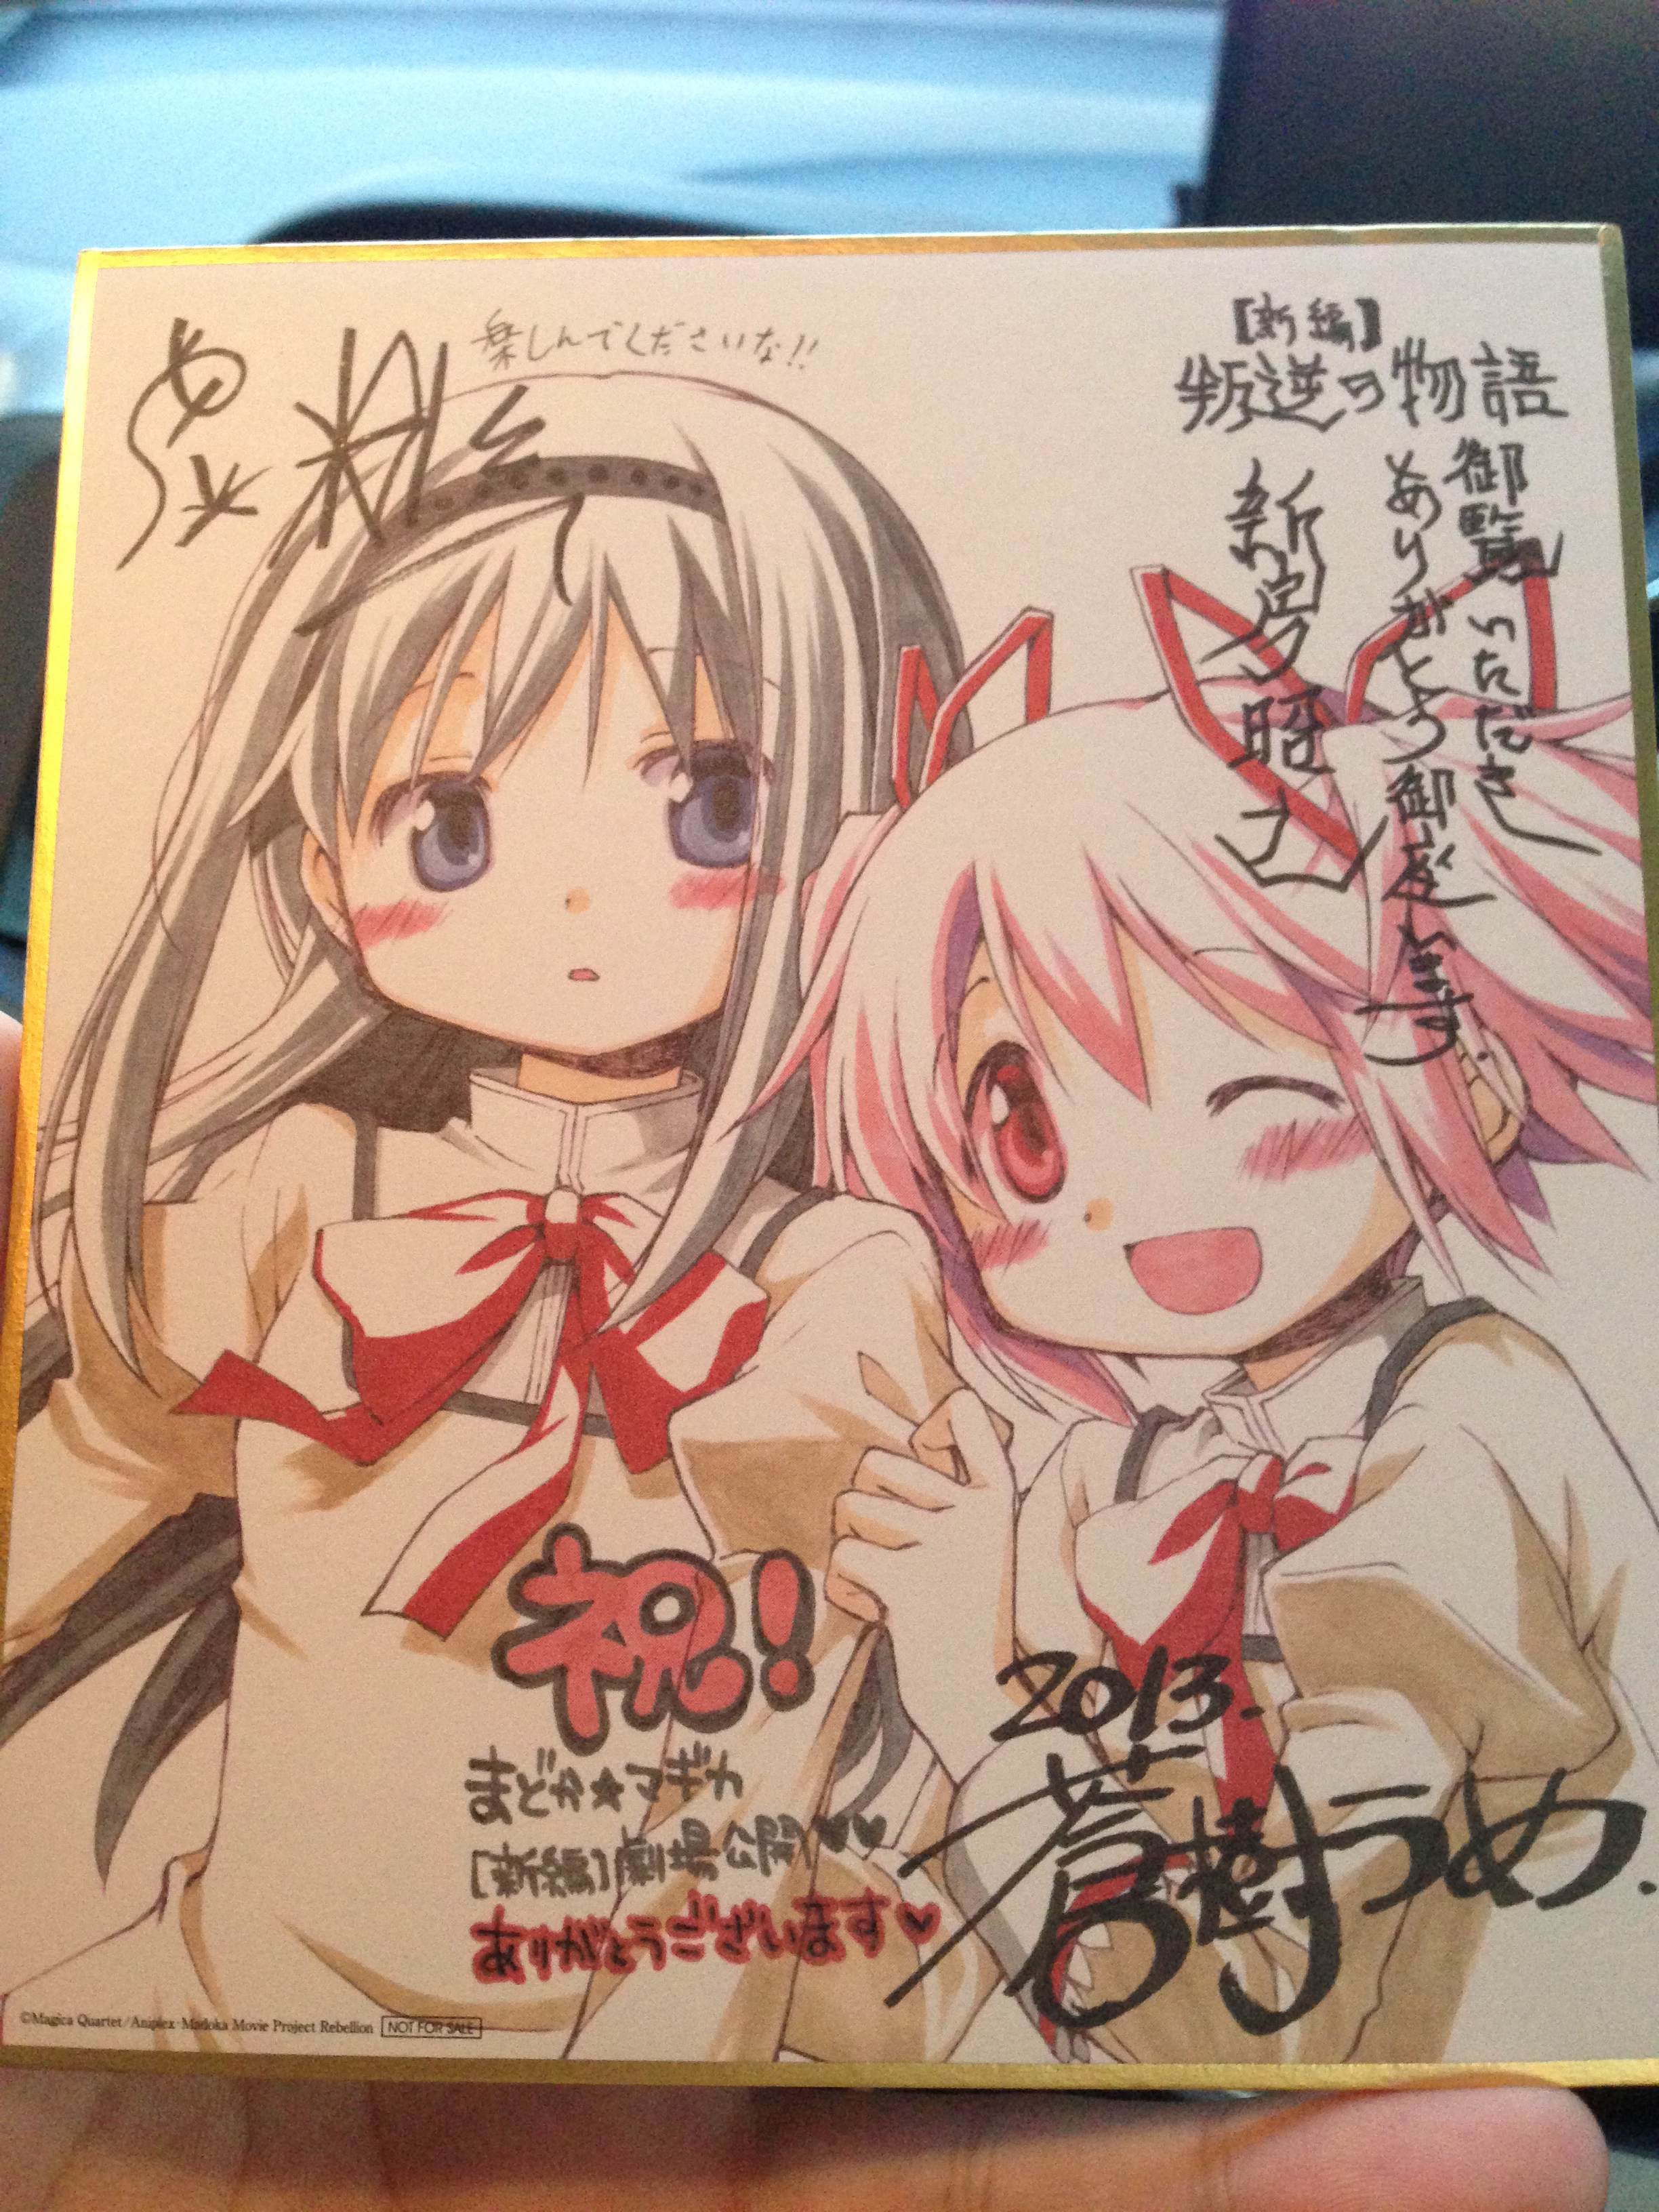 楽しんでくださいな!!
【新編】
叛逆の物語
御覧いただき
ありがとう御座います。
新房昭之
祝!
まどか☆マギカ
[新編]劇場公開♥♥
ありがとうございます♥
2013.
蒼樹うめ.
©Magica Quartet/Aniplex·Madoka Movie Project Rebellion NOT FOR SALE